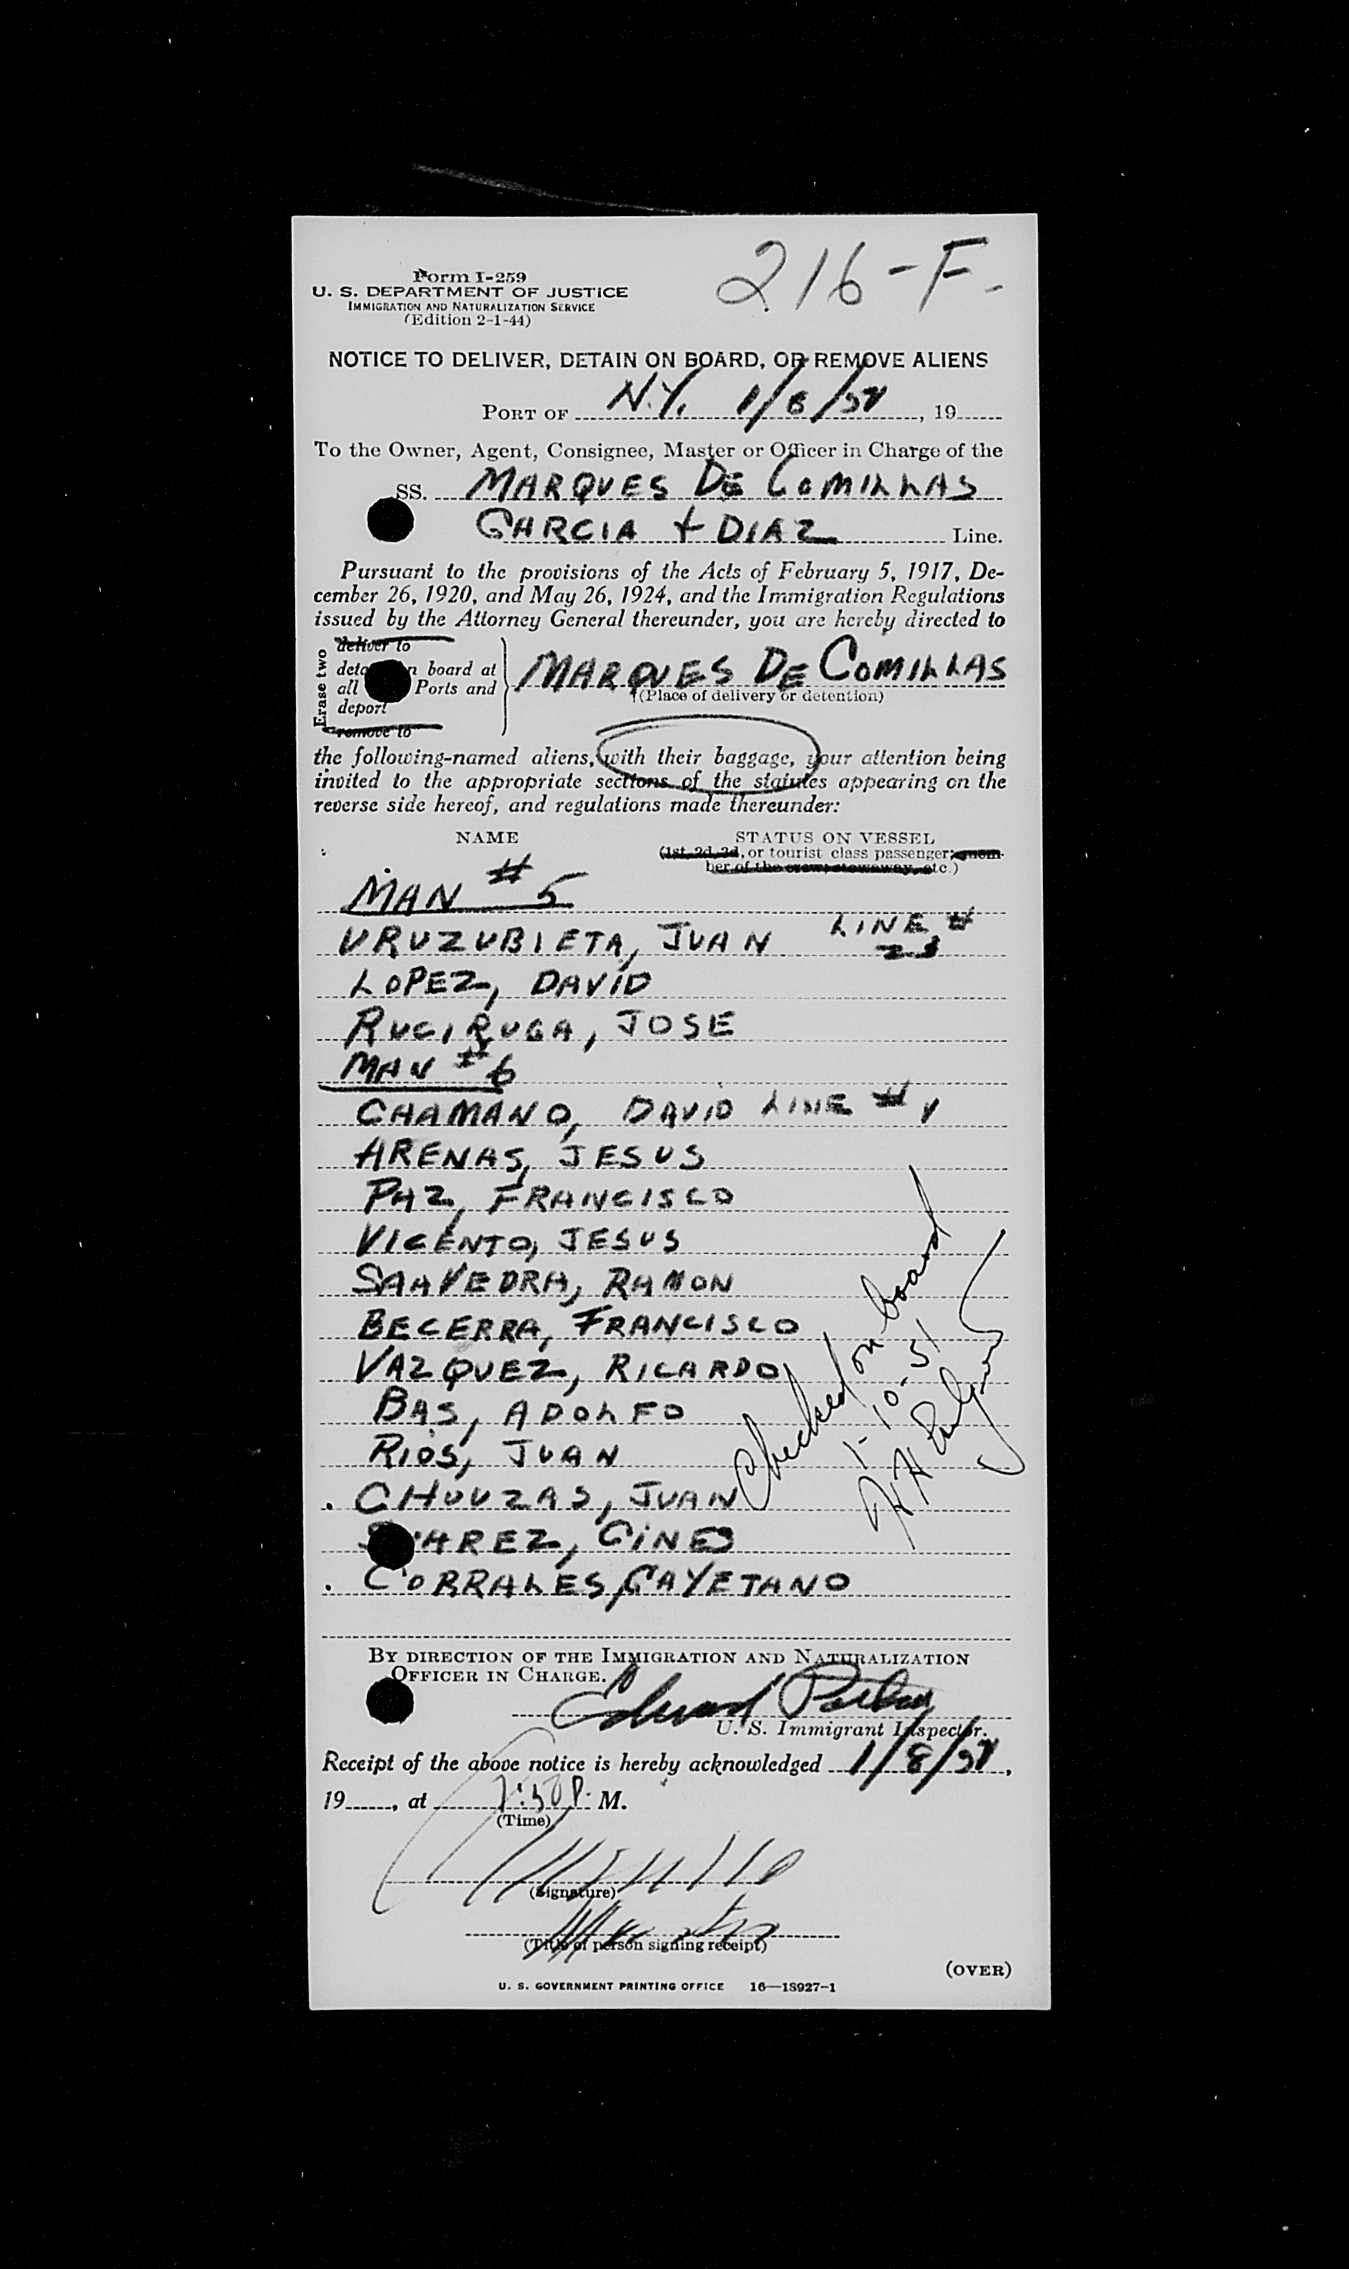 216-F-
Form I-259
U. S. DEPARTMENT OF JUSTICE
IMMIGRATION AND NATURALIZATION SERVICE
(Edition 2-1-44)
NOTICE TO DELIVER, DETAIN ON BOARD, OR REMOVE ALIENS
PORT OF N.Y. 1/8/51, 19
To the Owner, Agent, Consignee, Master or Officer in Charge of the
SS. MARQUES DE COMILLAS
GARCIA + DIAZ Line.
Pursuant to the provisions of the Acts of February 5, 1917, De-
cember 26, 1920, and May 26, 1924, and the Immigration Regulations
issued by the Attorney General thereunder, you are hereby directed to
Erase two
deliver to
board at
all Ports and
deport
remove to
MARQUES DE COMILLAS
(Place of delivery or detention)
the following-named aliens, with their baggage, your attention being
invited to the appropriate sections of the statutes appearing on the
reverse side hereof, and regulations made thereunder:
NAME STATUS ON VESSEL
(1st, 2d, 3d, or tourist class passenger; mem-
ber of the crew; stowaway, etc.)
MAN # 5
URUZUBIETA, JUAN LINE #
23
LOPEZ, DAVID
RUCIRUGA, JOSE
MAN # 6
CHAMANO, DAVID LINE # 1
ARENAS, JESUS
PAZ, FRANCISCO
VICENTO, JESUS
SAAVEDRA, RAMON
BECERRA, FRANCISCO
VAZQUEZ, RICARDO
BAS, ADOLFO
RIOS, JUAN
CHOUZAS, JUAN
SUAREZ, GINES
CORRALES, CAYETANO
Checked on board
1-10-51
BY DIRECTION OF THE IMMIGRATION AND NATURALIZATION
OFFICER IN CHARGE.
Edward
U. S. Immigrant Inspector.
Receipt of the above notice is hereby acknowledged 1/8/51,
19, at 7:50 P. M.
(Time)
(Signature)
Master
(Title of person signing receipt)
(OVER)
U. S. GOVERNMENT PRINTING OFFICE 16—18927-1